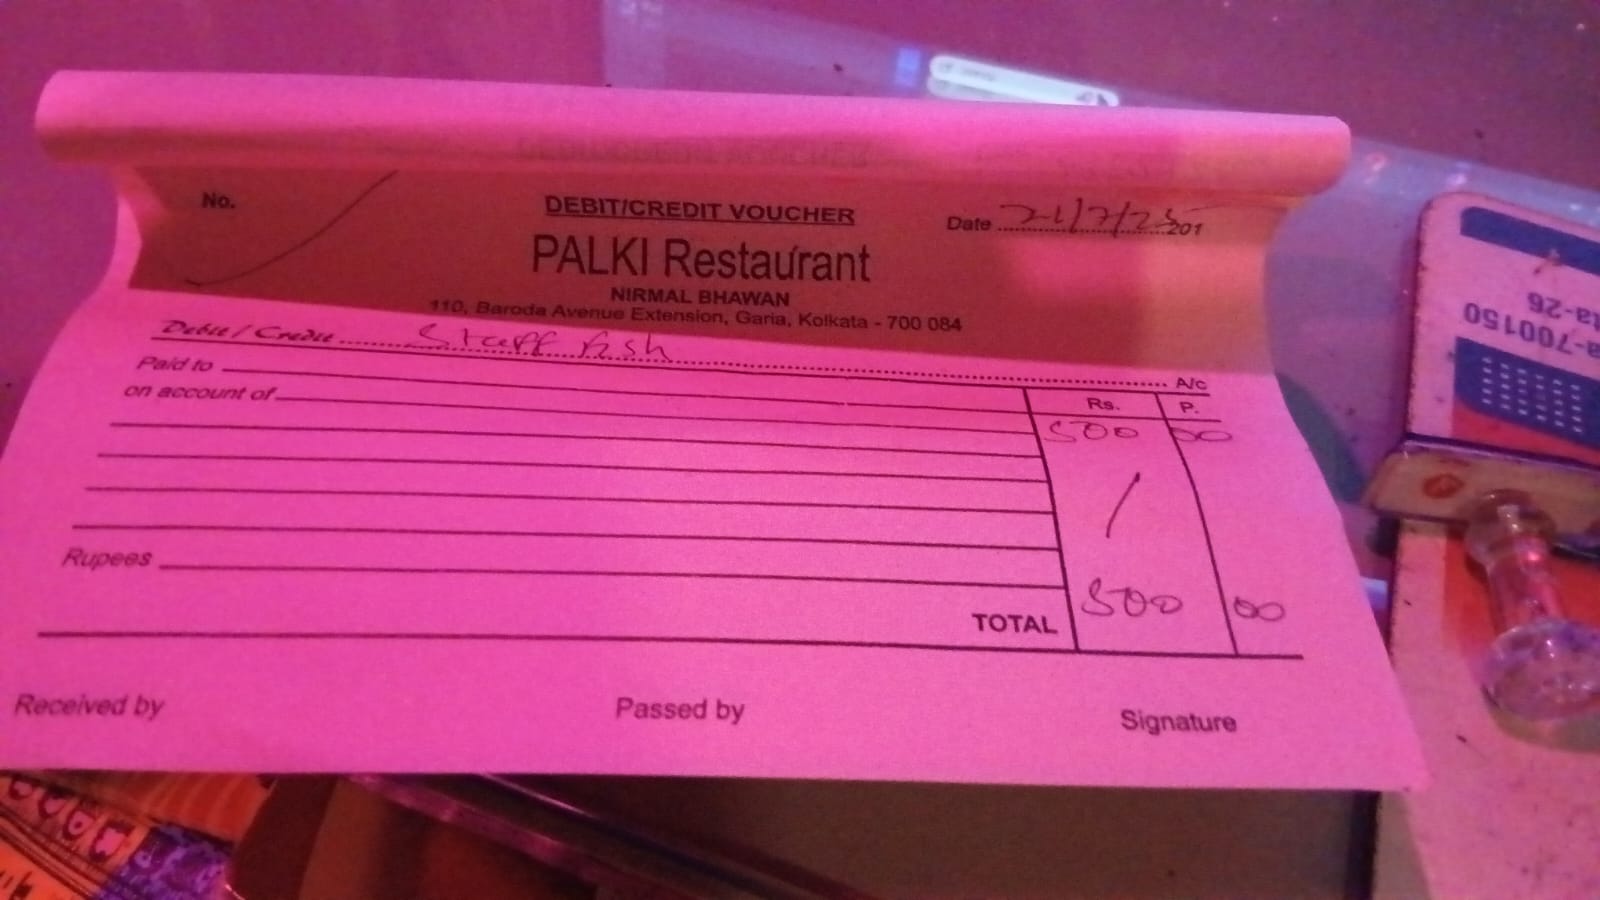 No.
DEBIT/CREDIT VOUCHER
Date 21/7/25 201
PALKI Restaurant
NIRMAL BHAWAN
110, Baroda Avenue Extension, Garia, Kolkata - 700 084
Debit / Credit Staff fish A/c
Paid to
on account of
Rs. P.
500 00
Rupees
TOTAL 500 00
Received by Passed by Signature
a-700150
ta-26